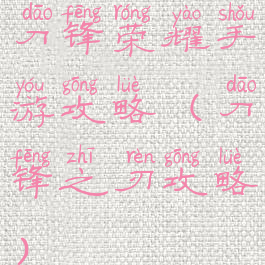 dāo fēng róng yào shǒu
刀锋荣耀手
yóu gōng lüè dāo
游攻略(刀
fēng zhī rèn gōng lüè
锋之刃攻略
)